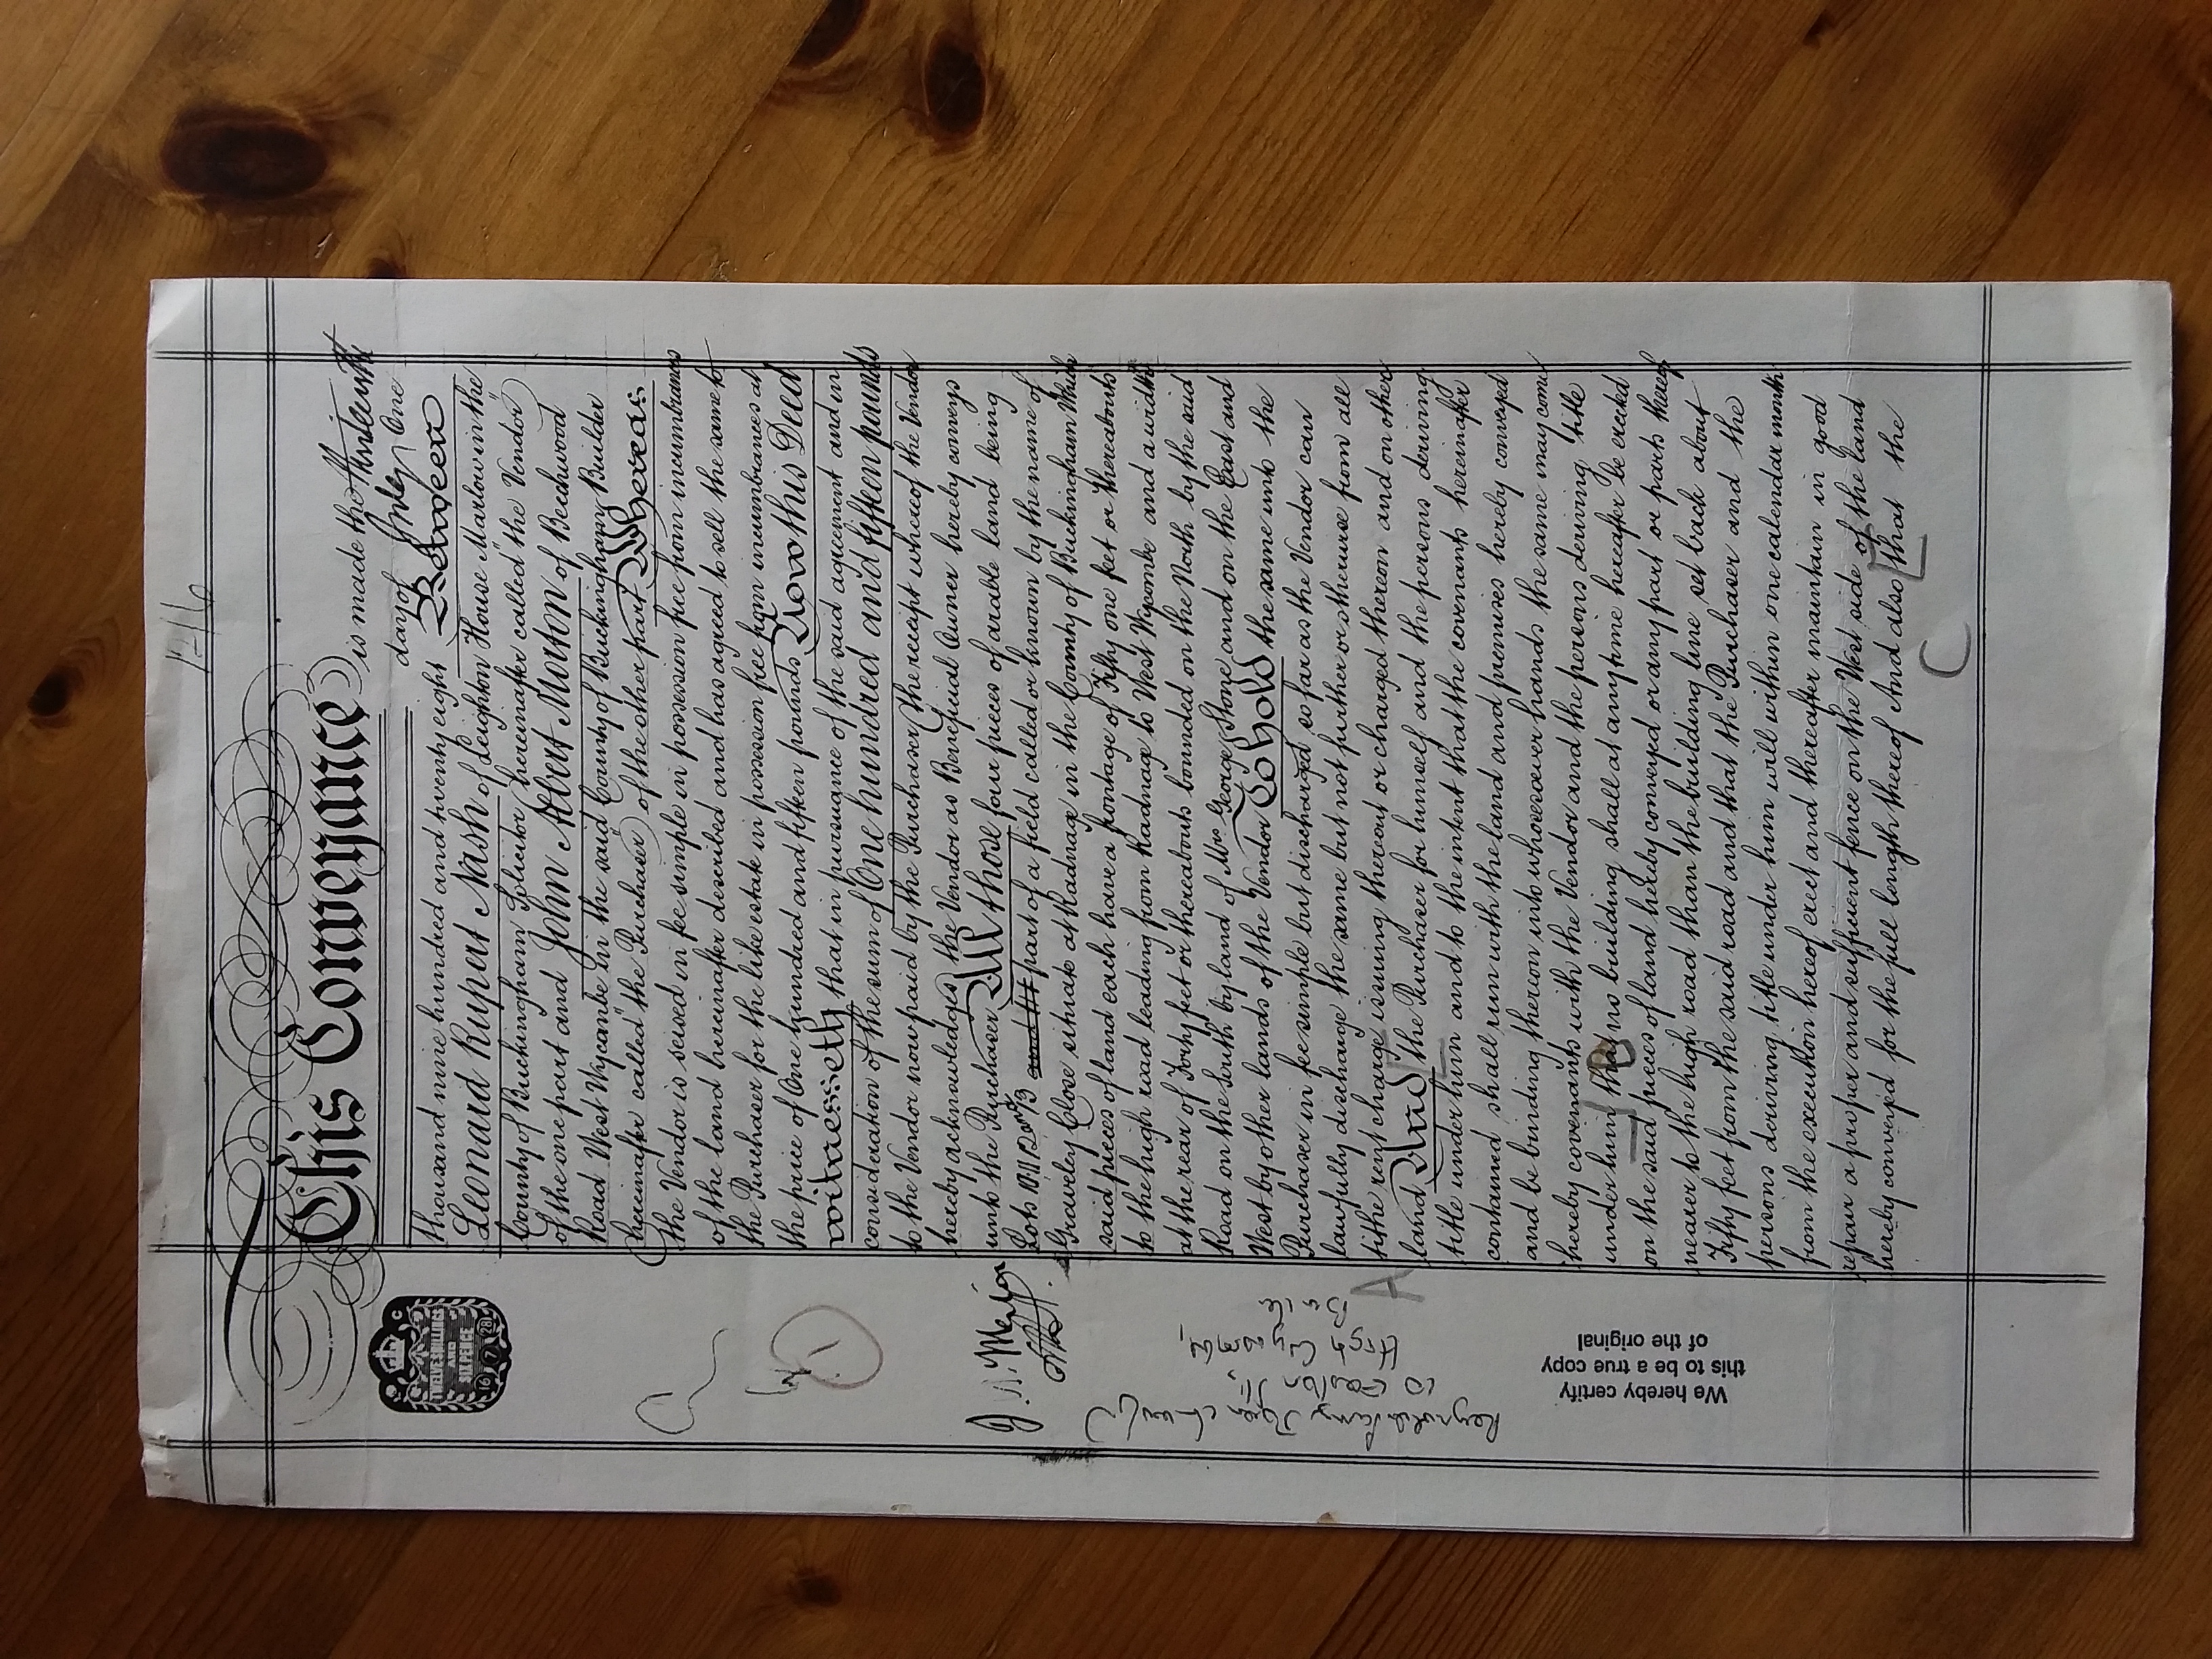 This Conveyance is made the thirteenth
day of July One
thousand nine hundred and twenty eight Between
Leonard Rupert Nash of Leighton House Marlow in the
County of Buckingham Solicitor (hereinafter called "the Vendor")
of the one part and John Albert Monton of Beechwood
Road West Wycombe in the said County of Buckingham Builder
(hereinafter called "the Purchaser") of the other part Whereas
the Vendor is seised in fee simple in possession free from incumbrances
of the land hereinafter described and has agreed to sell the same to
the Purchaser for the like estate in possession free from incumbrances at
the price of One hundred and fifteen pounds Now this Deed
witnesseth that in pursuance of the said agreement and in
consideration of the sum of One hundred and fifteen pounds
to the Vendor now paid by the Purchaser (the receipt whereof the Vendor
hereby acknowledges) the Vendor as Beneficial Owner hereby conveys
unto the Purchaser All those four pieces of arable land being
Lots 10 11 12 and 13 part of a field called or known by the name of
Gravely Close situate at Radnage in the County of Buckingham Which
said pieces of land each have a frontage of Fifty one feet or thereabouts
to the high road leading from Radnage to West Wycombe and a width
at the rear of Forty feet or thereabouts bounded on the North by the said
Road on the South by land of Mrs George Stone and on the East and
West by other lands of the Vendor To hold the same unto the
Purchaser in fee simple but discharged so far as the Vendor can
lawfully discharge the same but not further or otherwise from all
tithe rent charge issuing thereout or charged thereon and on other
land And the Purchaser for himself and the persons deriving
title under him and to the intent that the covenants hereinafter
contained shall run with the land and premises hereby conveyed
and be binding thereon into whosesoever hands the same may come
hereby covenants with the Vendor and the persons deriving title
under him that no building shall at any time hereafter be erected
on the said pieces of land hereby conveyed or any part or parts thereof
nearer to the high road than the building line set back about
Fifty feet from the said road and that the Purchaser and the
persons deriving title under him will within one calendar month
from the execution hereof erect and thereafter maintain in good
repair a proper and sufficient fence on the West side of the land
hereby conveyed for the full length thereof And also that the
TWELVE SHILLINGS
AND
SIXPENCE
16 7 28
1
10 Easton St,
High Wycombe,
Bucks
We hereby certify
this to be a true copy
of the original
A
B
C